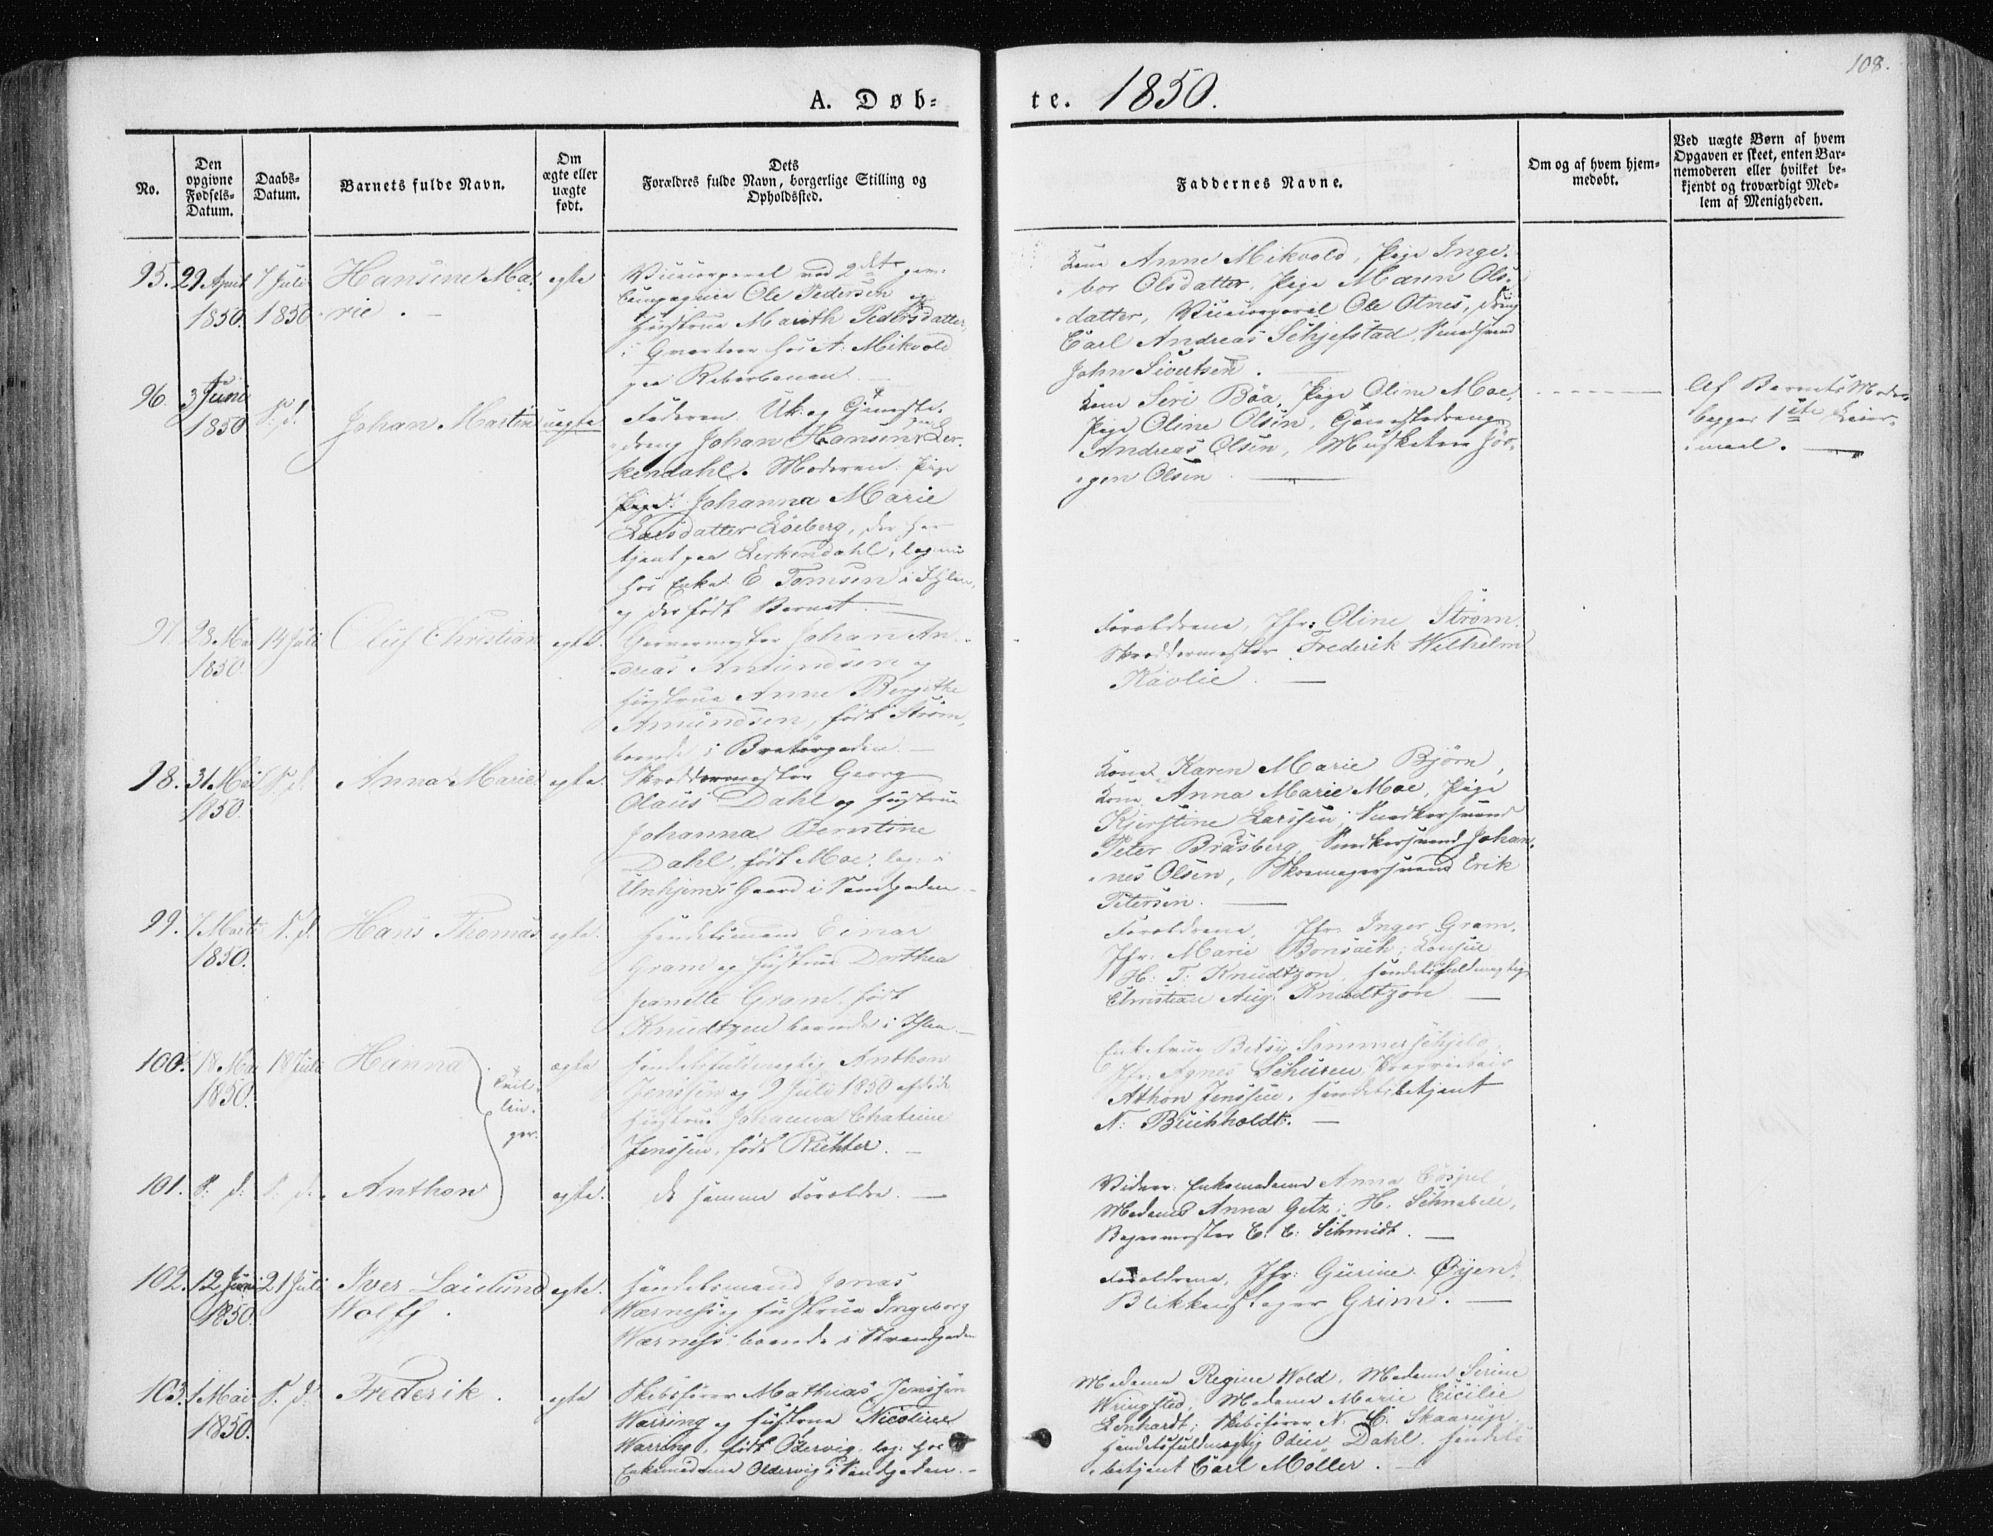 108.
A. Døb-
te. 1850.
No.
Den
opgivne
Fødsels-
Datum.
Daabs-
Datum.
Barnets fulde Navn.
Om
ægte eller
uægte
født.
Dets
Forældres fulde Navn, borgerlige Stilling og
Opholdssted.
Faddernes Navne.
Om og af hvem hjem-
medøbt.
Ved uægte Børn af hvem
Opgaven er skeet, enten Bar-
nemoderen eller hvilket be-
kjendt og troværdigt Med-
lem af Menigheden.
95. 29 April 7 Juli Hansine Ma- egte
1850. 1850 rie.
Vicecorporal ved 2det
Compagnie Ole Pedersen og
Hustrue Marith Pedersdatter,
i Qvarteer hos A. Mikvold
paa Reberbanen
Kone Anne Mikvold, Pige Inge-
bor Olsdatter, Pige Maren Ols-
datter, Vicecorporal Ole Otnes, Dreng
Carl Andreas Schjefstad, Smedsvend
John Sivertsen.
96. 3 Juni S. d. Johan Martin uegte
1850
Faderen: Uk: og Tjeneste-
dreng Johan Hansen Ler-
kendahl. Moderen: Pige
Johanna Marie
Larsdatter Løeberg, der har
tjent paa Lerkendahl, log: nu
hos Enke E Tomsen i Ihlen,
og der født Barnet.
Kone Siri Bøa, Pige Oline Moe,
Pige Oline Olsen, Tjenestedreng
Andreas Olsen, Musketeer Jør-
gen Olsen
Af Barnets Moder
begges 1ste Leier-
maal.
97. 28 Mai 14 Juli Oluf Christian egte
1850
Garvermester Johan An-
dreas Amundsen og
Hustrue Anne Bergithe
Amundsen, født Strøm,
boende i Bratørgaden.
Forældrene, Jfr: Oline Strøm,
Skræddermester Frederik Wilhelm
Kavlie.
98. 31 Mai S. d. Anna Marie egte
1850.
Skræddermester Georg
Olaus Dahl og Hustrue
Johanna Berntine
Dahl, født Moe, log: i
Unhjems Gaard i Sandgaden
Kone Karen Marie Bjørn,
Kone Anna Marie Moe, Pige
Kjerstine Larssen, Snedkersvend
Peter Brasberg, Snedkersvend Johan-
nes Olsen, Skomagersvend Erik
Petersen.
99. 7 Marts S. d. Hans Thomas egte
1850.
Handelsmand Einar
Gram og Hustrue Dorthea
Jeanette Gram, født
Knudtzon boende i Ihlen
Forældrene, Jfr: Inger Gram,
Jfr: Marie Bonsach, Consul
H. T. Knudtzon, Handelsfuldmægtig
Christian Aug: Knudtzon
100. 18 Mai 18 Juli Hanna ægte
1850.
Tvil-
lin-
ger.
Handelsfuldmægtig Anthon
Jenssen og 9 Juli 1850 afdøde
Hustrue Johanna Chatrine
Jenssen, født Richter.
Enkefrue Betsy Sommerschjeld,
Jfr: Agnes Schusen, Proprietair
Athon Jenssen, Handelsbetjent
N: Buchholdt.
101. S. d. S. d. Anthon egte
de samme Forældre.
Vidner: Enkemadame Anna
Madame Anna Getz, H. Schnabell,
Bagermester C. C. Schmidt.
102. 12 Juni 21 Juli Iver Laidund egte
1850. Wolff.
Handelsmand Jonas
Wærnes og Hustrue Ingeborg
Wærness boende i Strandgaden
Forældrene, Jfr: Gurine Øyen,
Blikkenslager Grim.
103. 1 Mai S. d. Frederik. egte
1850.
Skibsfører Mathias Jenssen
Warring og Hustrue Nicoline
Warring, født Oldervig, log: hos
Enkemadame Oldervig i Sandgaden.
Madame Regine Wold, Madame Serine
Wringsted, Madame Marie Cicilie
Lenhardt, Skibsfører N. C. Skaarup,
Handelsfuldmægtig Odin Dahl, Handels-
betjent Carl Møller.